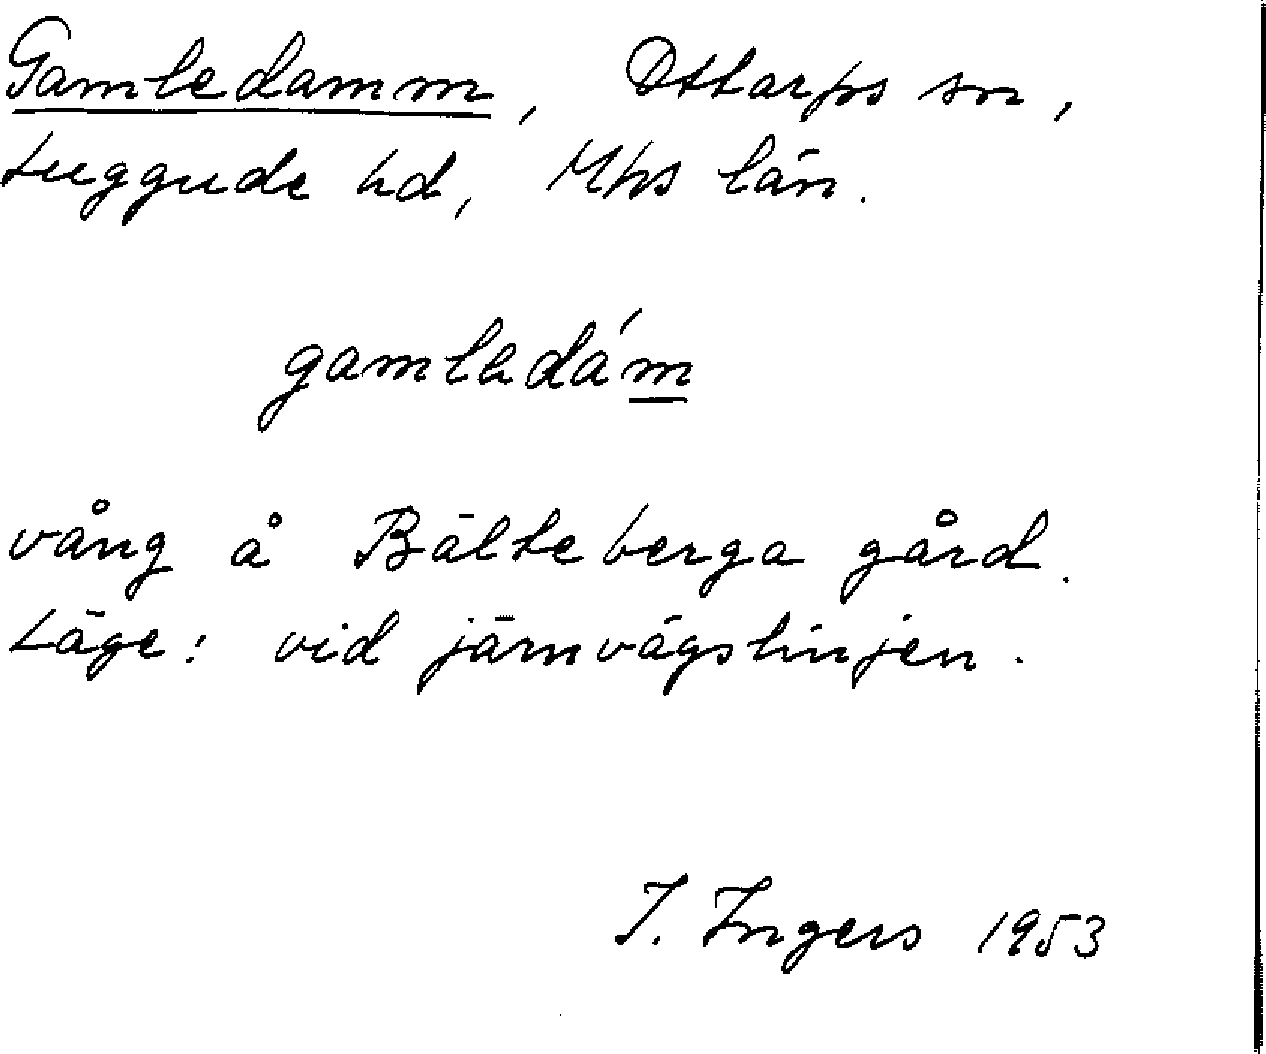 Gamledamm, Ottarps sn,
Luggude hd, Mhs län.
gamladá'm
vång å Bälteberga gård.
Läge: vid järnvägslinjen.
I. Ingers 1953